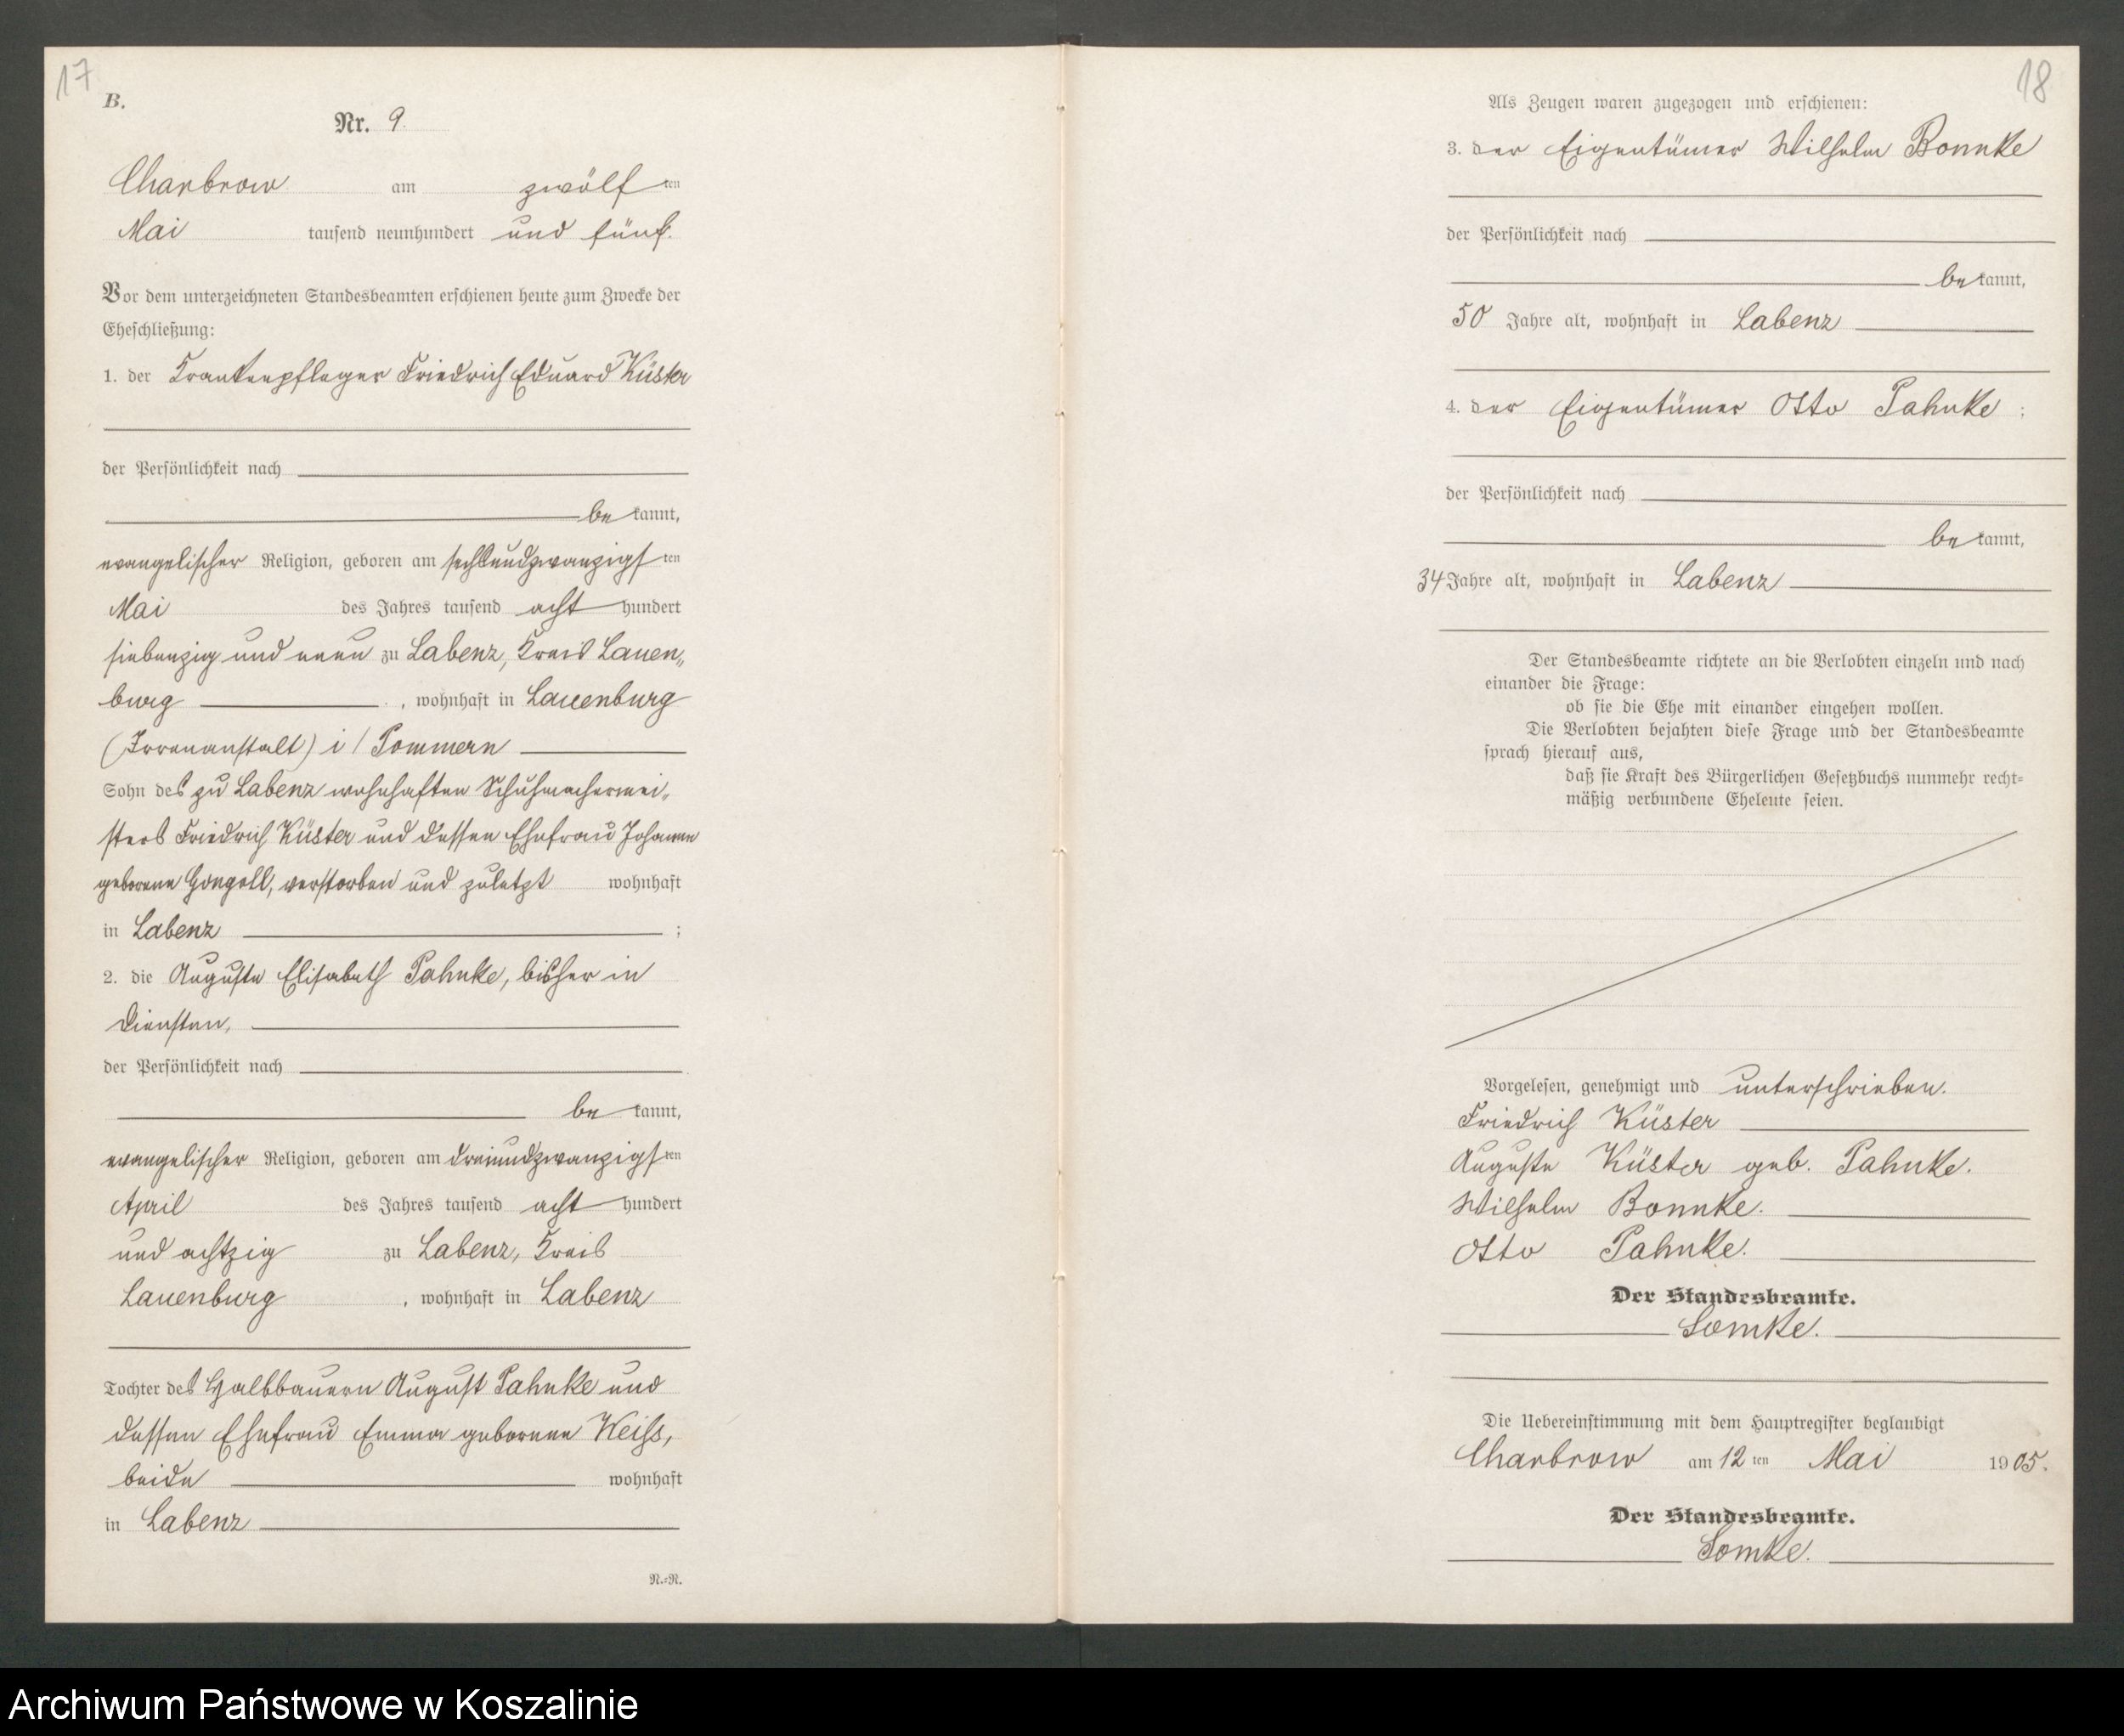 17
B.
Nr. 9.
Charbrow am zwölften
Mai tausend neunhundert und fünf.
Vor dem unterzeichneten Standesbeamten erschienen heute zum Zwecke der
Eheschließung:
1. der Krankenpfleger Friedrich Eduard Küster
der Persönlichkeit nach
bekannt,
evangelischer Religion, geboren am sechsundzwanzigsten
Mai des Jahres tausend achthundert
siebenzig und neun zu Labenz, Kreis Lauen„
burg , wohnhaft in Lauenburg
(Irrenanstalt) i/ Pommern
Sohn des zu Labenz wohnhaften Schuhmachermei„
sters Friedrich Küster und dessen Ehefrau Johanne
geborene Gongoll, verstorben und zuletzt wohnhaft
in Labenz ;
2. die Auguste Elisabeth Pahnke, bisher in
Diensten,
der Persönlichkeit nach
bekannt,
evangelischer Religion, geboren am dreiundzwanzigsten
April des Jahres tausend achthundert
und achtzig zu Labenz, Kreis
Lauenburg , wohnhaft in Labenz
Tochter des Halbbauern August Pahnke und
dessen Ehefrau Emma geborene Weiss,
beide wohnhaft
in Labenz
N.=R.
18
Als Zeugen waren zugezogen und erschienen:
3. der Eigentümer Wilhelm Bonnke
der Persönlichkeit nach
bekannt,
50 Jahre alt, wohnhaft in Labenz
4. der Eigentümer Otto Pahnke ;
der Persönlichkeit nach
bekannt,
34 Jahre alt, wohnhaft in Labenz
Der Standesbeamte richtete an die Verlobten einzeln und nach
einander die Frage:
ob sie die Ehe mit einander eingehen wollen.
Die Verlobten bejahten diese Frage und der Standesbeamte
sprach hierauf aus,
daß sie kraft des Bürgerlichen Gesetzbuchs nunmehr recht=
mäßig verbundene Eheleute seien.
Vorgelesen, genehmigt und unterschrieben.
Friedrich Küster
Auguste Küster geb. Pahnke.
Wilhelm Bonnke.
Otto Pahnke.
Der Standesbeamte.
Somke.
Die Uebereinstimmung mit dem Hauptregister beglaubigt
Charbrow am 12 ten Mai 1905.
Der Standesbeamte.
Somke.
Archiwum Państwowe w Koszalinie